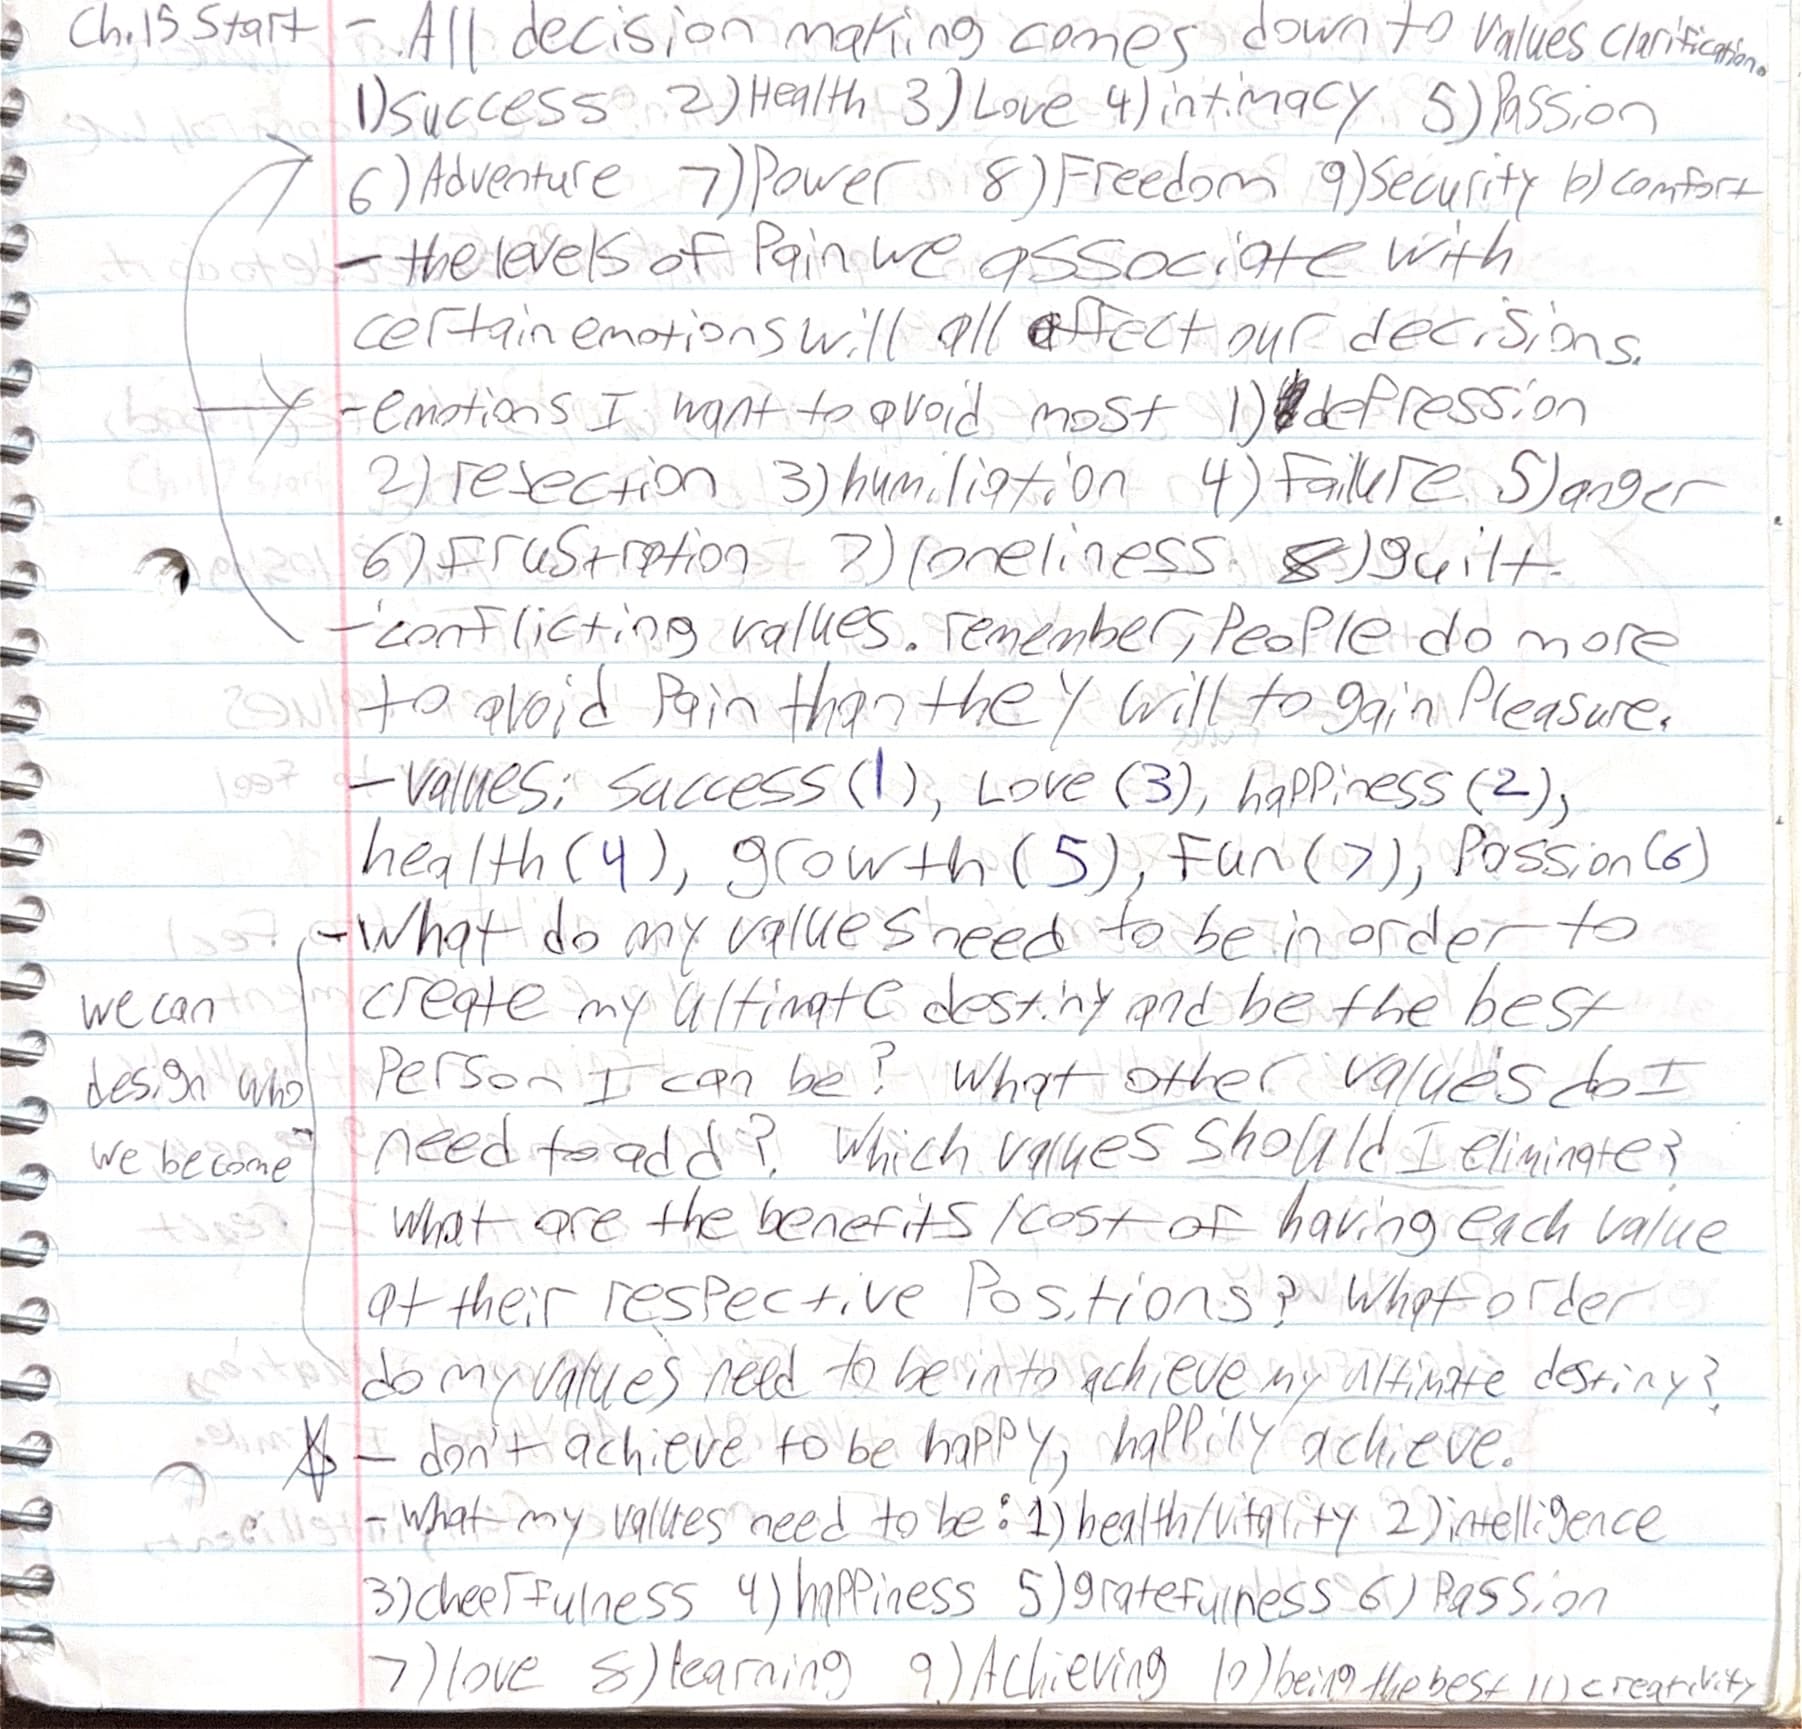 Ch.15 Start - All decision making comes down to values clarification.
1) success 2) Health 3) Love 4) intimacy 5) Passion
6) Adventure 7) Power 8) Freedom 9) Security 10) comfort
- the levels of Pain we associate with
certain emotions will all affect our decisions.
- emotions I want to avoid most 1) depression
2) rejection 3) humiliation 4) Failure 5) anger
6) Frustration 7) loneliness 8) guilt.
- conflicting values. remember, People do more
to avoid Pain than they will to gain Pleasure.
- values: success (1), Love (3), happiness (2),
health (4), growth (5), Fun (7), Passion (6)
- What do my values need to be in order to
create my ultimate destiny and be the best
Person I can be? What other values do I
need to add? Which values should I eliminate?
What are the benefits/cost of having each value
at their respective Positions? What order
do my values need to be in to achieve my ultimate destiny?
we can
design who
we become
- don't achieve to be happy, happily achieve.
- what my values need to be: 1) health/vitality 2) intelligence
3) cheerfulness 4) happiness 5) gratefulness 6) Passion
7) love 8) learning 9) Achieving 10) being the best 11) creativity